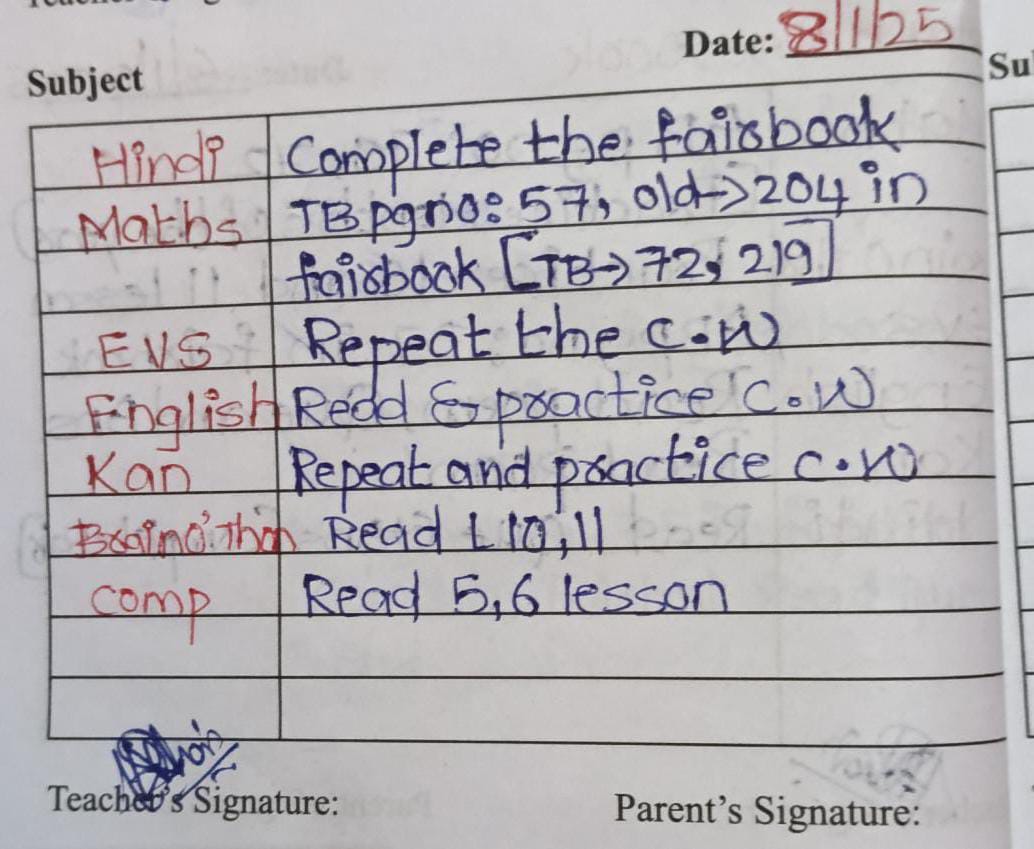 Date: 8/1/25
Subject
Su
Hindi Complete the fairbook
Maths TB pg no: 57, old→204 in
fairbook [TB→72, 219]
EVS Repeat the C.W
English Read & practice C.W
Kan Repeat and practice C.W
Braino'Thon Read L 10, 11
comp Read 5, 6 lesson
Teacher's Signature:
Parent's Signature: